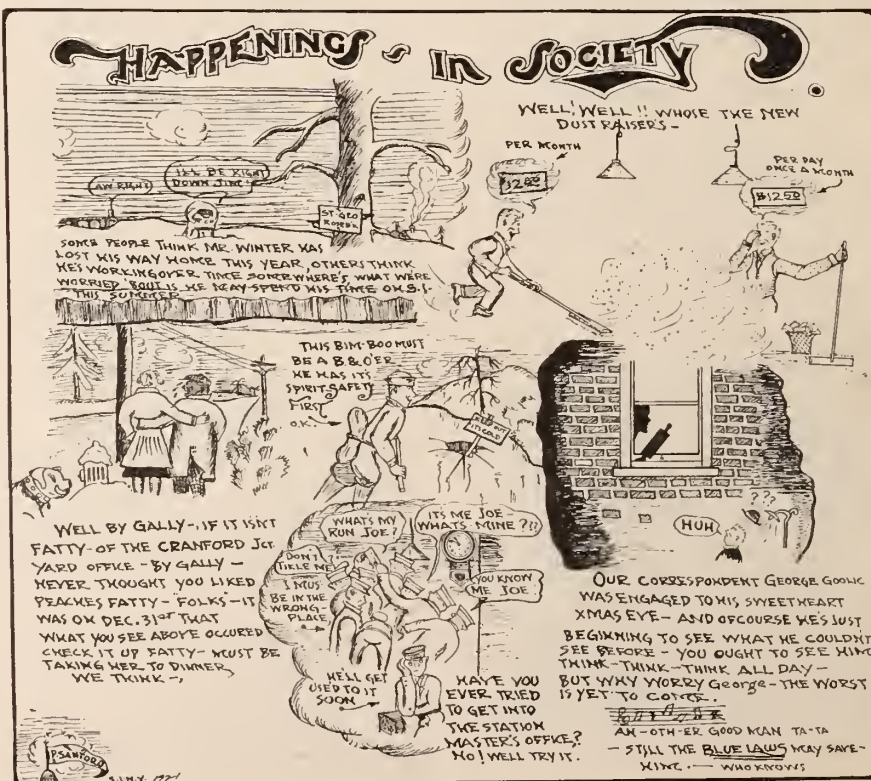 HAPPENINGS IN SOCIETY
"AW RIGHT"
I'LL BE RIGHT
DOWN JIM!
ST. GEO
SOME PEOPLE THINK MR. WINTER HAS
LOST HIS WAY HOME THIS YEAR, OTHERS THINK
HE'S WORKING OVER TIME SOMEWHERE'S WHAT WERE
WORRIED 'BOUT IS HE MAY SPEND HIS TIME ON S.I.
THIS SUMMER
WELL! WELL!! WHOSE THE NEW
DUST RAISER'S -
PER MONTH
PER DAY
ONCE A MONTH
$12.50
THIS BIM-BOO MUST
BE A B & O'ER
HE HAS ITS
SPIRIT SAFETY
FIRST
O.K.
KEEP OFF
ITS COLD
WELL BY GALLY-, IF IT ISN'T
FATTY- OF THE CRANFORD JCT.
YARD OFFICE - BY GALLY -
NEVER THOUGHT YOU LIKED
PEACHES FATTY - "FOLKS" - IT
WAS ON DEC. 31ST THAT
WHAT YOU SEE ABOVE OCCURED
CHECK IT UP FATTY - MUST BE
TAKING HER TO DINNER
WE THINK -,
WHATS MY
RUN JOE?
ITS ME JOE
WHATS MINE ?!?
DON'T
TIKLE ME
I MUS
BE IN THE
WRONG-
PLACE
YOU KNOW
ME JOE
HE'LL GET
USED TO IT
SOON
HAVE YOU
EVER TRIED
TO GET INTO
THE STATION
MASTER'S OFFICE?
NO! WELL TRY IT.
???
HUH
OUR CORRESPONDENT GEORGE GOOLIC
WAS ENGAGED TO HIS SWEETHEART
XMAS EVE - AND OFCOURSE HE'S JUST
BEGINNING TO SEE WHAT HE COULDN'T
SEE BEFORE - YOU OUGHT TO SEE HIM
THINK - THINK - THINK ALL DAY -
BUT WHY WORRY George - THE WORST
IS YET TO COME.
AN-OTH-ER GOOD MAN TA-TA
- STILL THE BLUE LAWS MAY SAVE -
HIM. - WHO KNOWS
P. SANFORD
S.I.N.Y. 1921